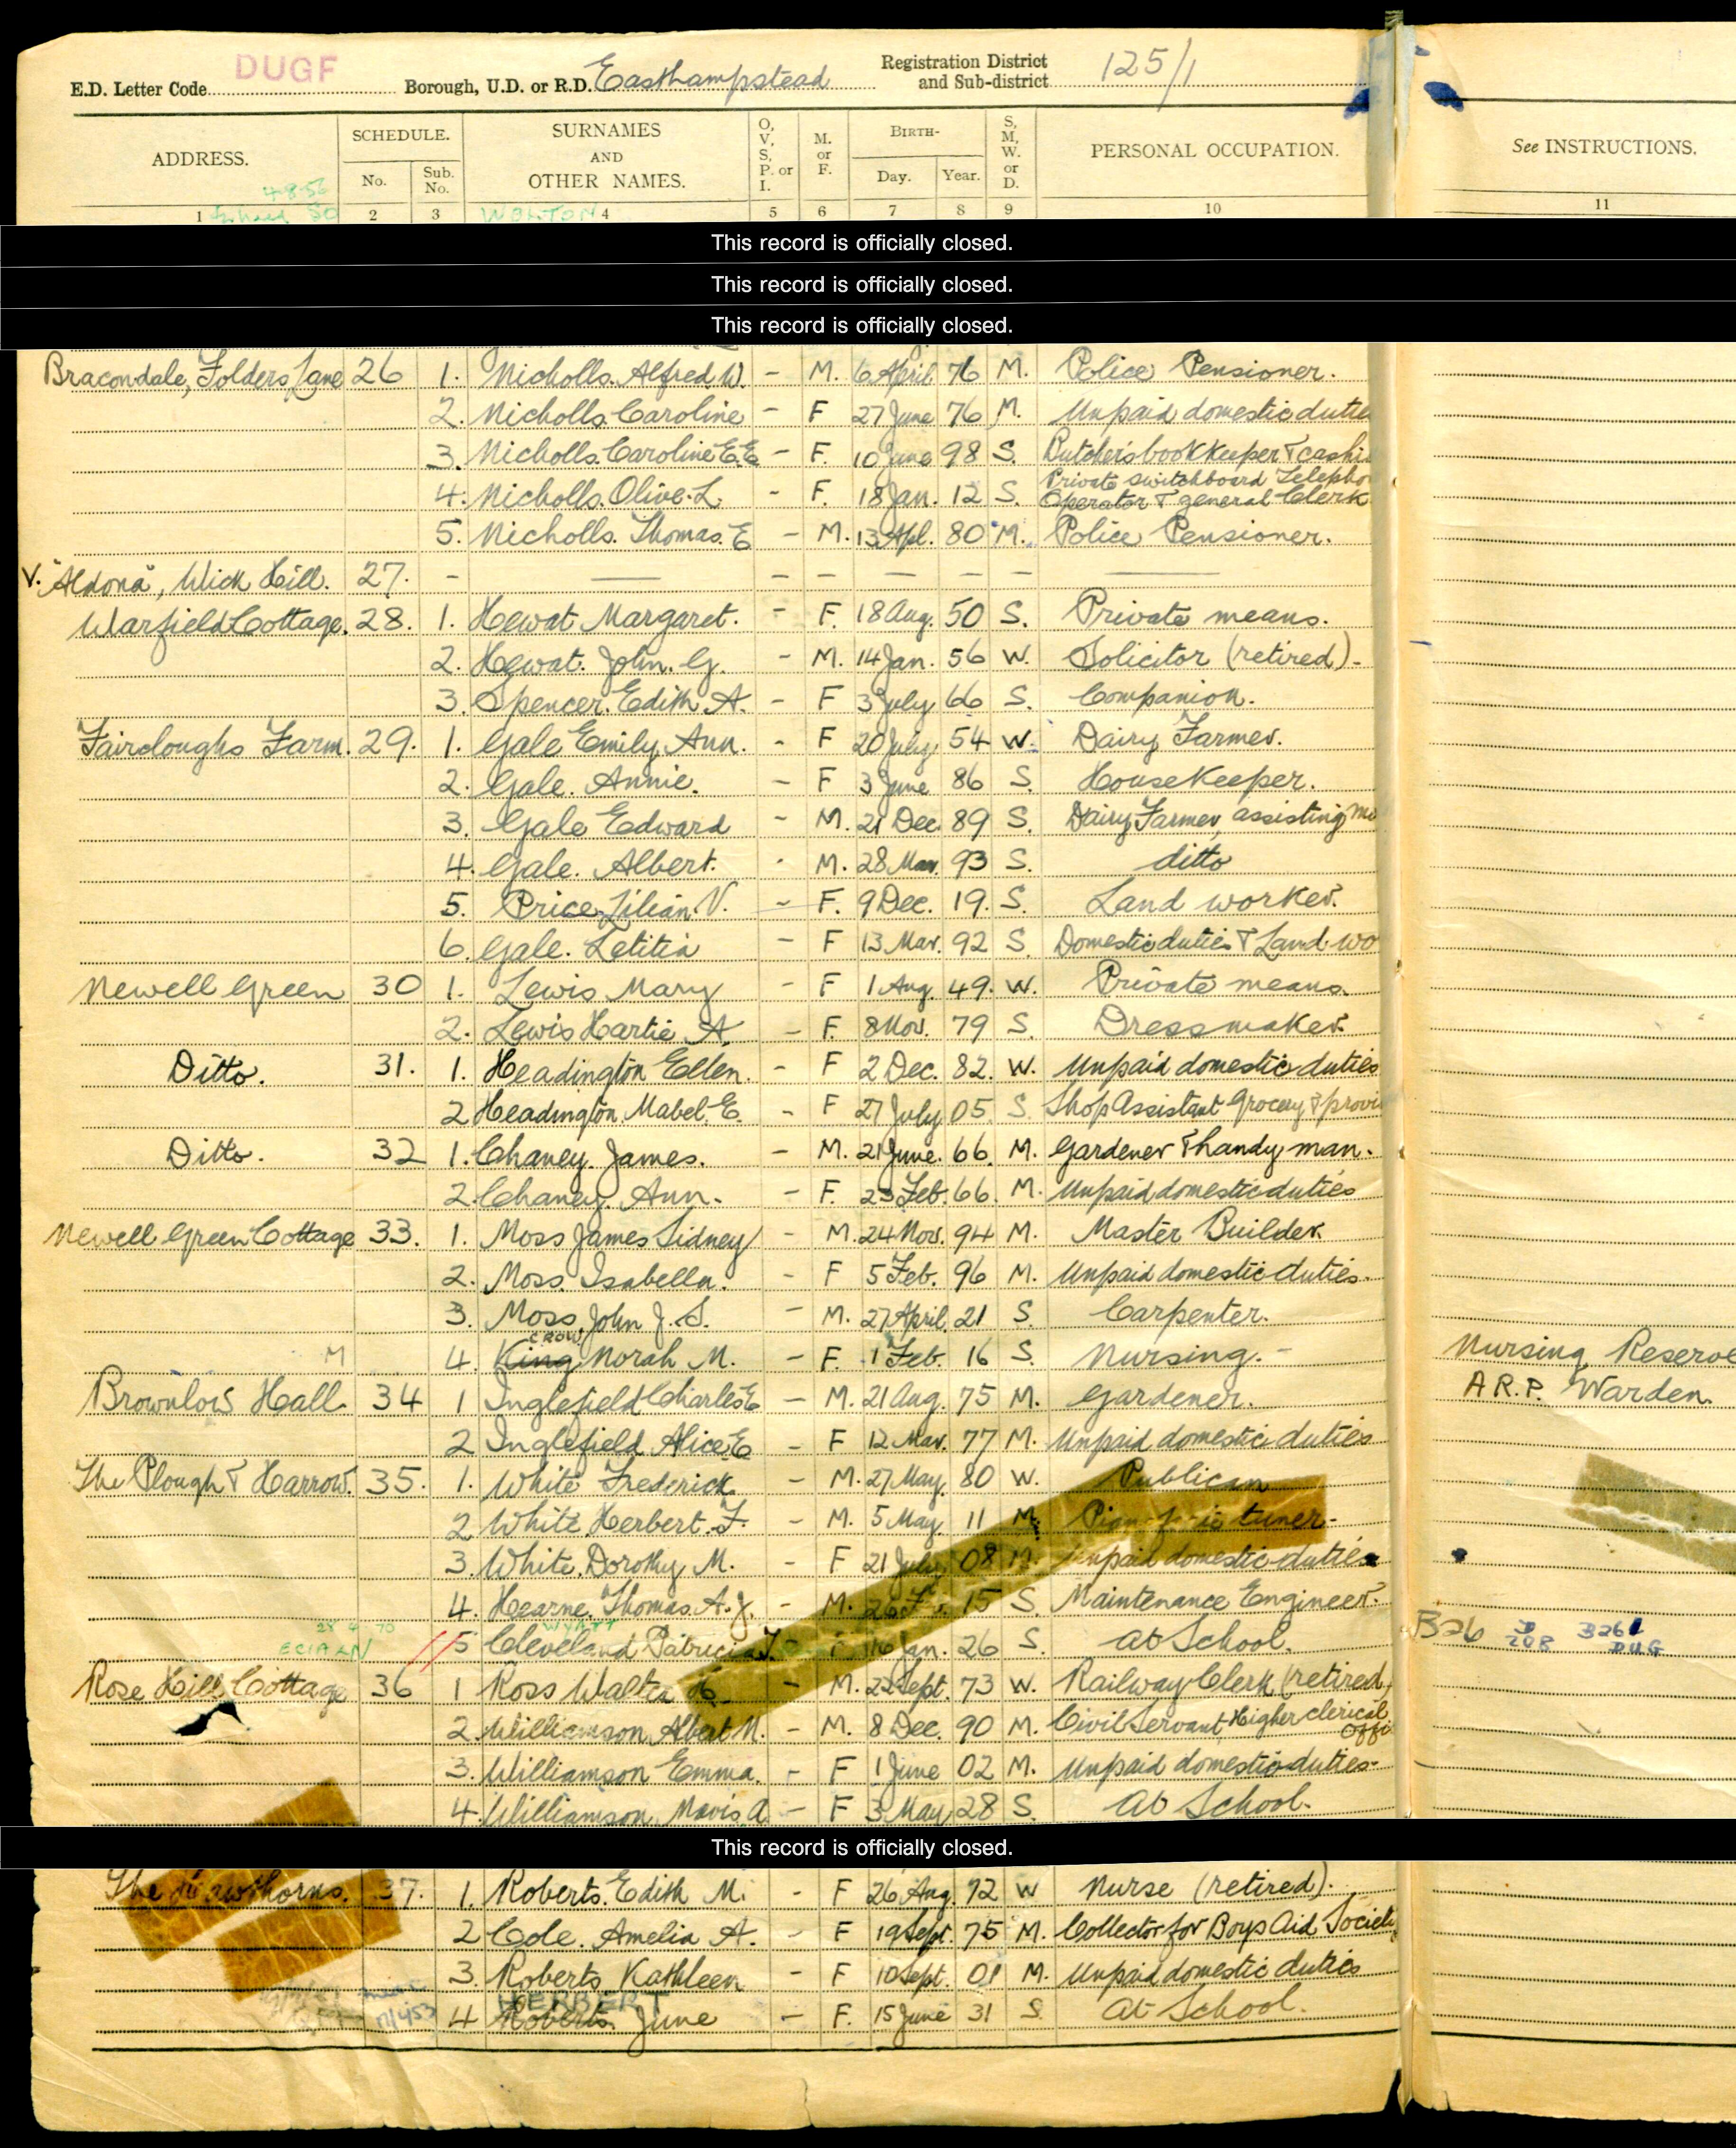 E.D. Letter Code DUGF Borough, U.D. or R.D. Easthampstead Registration District and Sub-district 125/1
ADDRESS. SCHEDULE. No. Sub. No. SURNAMES AND OTHER NAMES. O, V, S, P. or I. M. or F. BIRTH- Day. Year. S, M, W. or D. PERSONAL OCCUPATION. See INSTRUCTIONS.
4-8-56
1 2 3 4 5 6 7 8 9 10 11
This record is officially closed.
This record is officially closed.
This record is officially closed.
Bracondale, Folders Lane 26 1. Nicholls. Alfred. W. - M. 6 April 76 M. Police Pensioner.
2. Nicholls. Caroline - F 27 June 76 M. Unpaid domestic dutie
3. Nicholls. Caroline E.E - F. 10 June 98 S. Butcher's bookkeeper & cashi
4. Nicholls. Olive. L. - F. 18 Jan. 12 S. Private switchboard Telepho Operator & general Clerk
5. Nicholls. Thomas. E - M. 13 Apl. 80 M. Police Pensioner.
V. "Aldona", Wick Hill. 27. - — - - — - - —
Warfield Cottage. 28. 1. Hewat Margaret. - F. 18 Aug. 50 S. Private means.
2. Hewat. John. G. - M. 14 Jan. 56 W. Solicitor (retired) -
3. Spencer. Edith. A. - F 3 July 66 S. Companion.
Faircloughs Farm. 29. 1. Gale Emily Ann. - F 20 July 54 W. Dairy Farmer.
2. Gale. Annie. - F 3 June 86 S. HouseKeeper.
3. Gale Edward - M. 21 Dec. 89 S. Dairy Farmer, assisting mo
4. Gale. Albert. - M. 28 Mar. 93 S. ditto
5. Price. Lilian. V. - F. 9 Dec. 19. S. Land worker.
6. Gale. Letitia - F 13 Mar. 92 S. Domestic duties & Land wo
Newell Green 30 1. Lewis Mary - F 1 Aug. 49. W. Private means.
2. Lewis Hartie A. - F. 8 Nov. 79 S. Dressmaker.
Ditto. 31. 1. Headington Ellen. - F 2 Dec. 82. W. Unpaid domestic duties
2 Headington. Mabel. E. - F 27 July 05. S. Shop Assistant Grocery & provi
Ditto. 32 1. Chaney. James. - M. 21 June. 66. M. Gardener & handy man.
2. Chaney. Ann. - F. 23 Feb. 66. M. Unpaid domestic duties
Newell Green Cottage 33. 1. Moss James Sidney - M. 24 Nov. 94 M. Master Builder.
2. Moss. Isabella. - F 5 Feb. 96 M. Unpaid domestic duties.
3. Moss. John J. S. - M. 27 April. 21 S. Carpenter.
CROW
M 4. King Norah M. - F. 1 Feb. 16 S. Nursing. - Nursing Reserve
Brownlow Hall. 34 1 Inglefield Charles E - M. 21 Aug. 75 M. Gardener. A.R.P. Warden.
2 Inglefield Alice E - F 12 Mar. 77 M. Unpaid domestic duties
The Plough & Harrow. 35. 1. White Frederick. - M. 27 May. 80 W. Publican
2. White Herbert. F. - M. 5 May. 11 M. tuner-
3. White. Dorothy M. - F 21 July 08 M. Unpaid domestic duties
4. Hearne. Thomas. A. J. - M. 15 S. Maintenance Engineer.
28 4 70 WYATT
5 Cleveland Patricia Jan. 26 S. At School. B26
Rose Hill Cottage 36 1 Ross Walter H. - M. 22 Sept. 73 W. Railway Clerk (retired)
2. Williamson Albert N. - M. 8 Dec. 90 M. Civil Servant Higher clerical offi
3. Williamson Emma. - F 1 June 02 M. Unpaid domestic duties-
4. Williamson. Mavis A - F 3 May 28 S. At School.
This record is officially closed.
The Hawthorns. 37. 1. Roberts. Edith M. - F 26 Aug. 72 W Nurse (retired).
2 Cole. Amelia A. - F 19 Sept. 75 M. Collector for Boys Aid Society
3. Roberts Kathleen - F 10 Sept. 01 M. Unpaid domestic duties
HERBERT
4 Roberts. June - F. 15 June 31 S. At School.